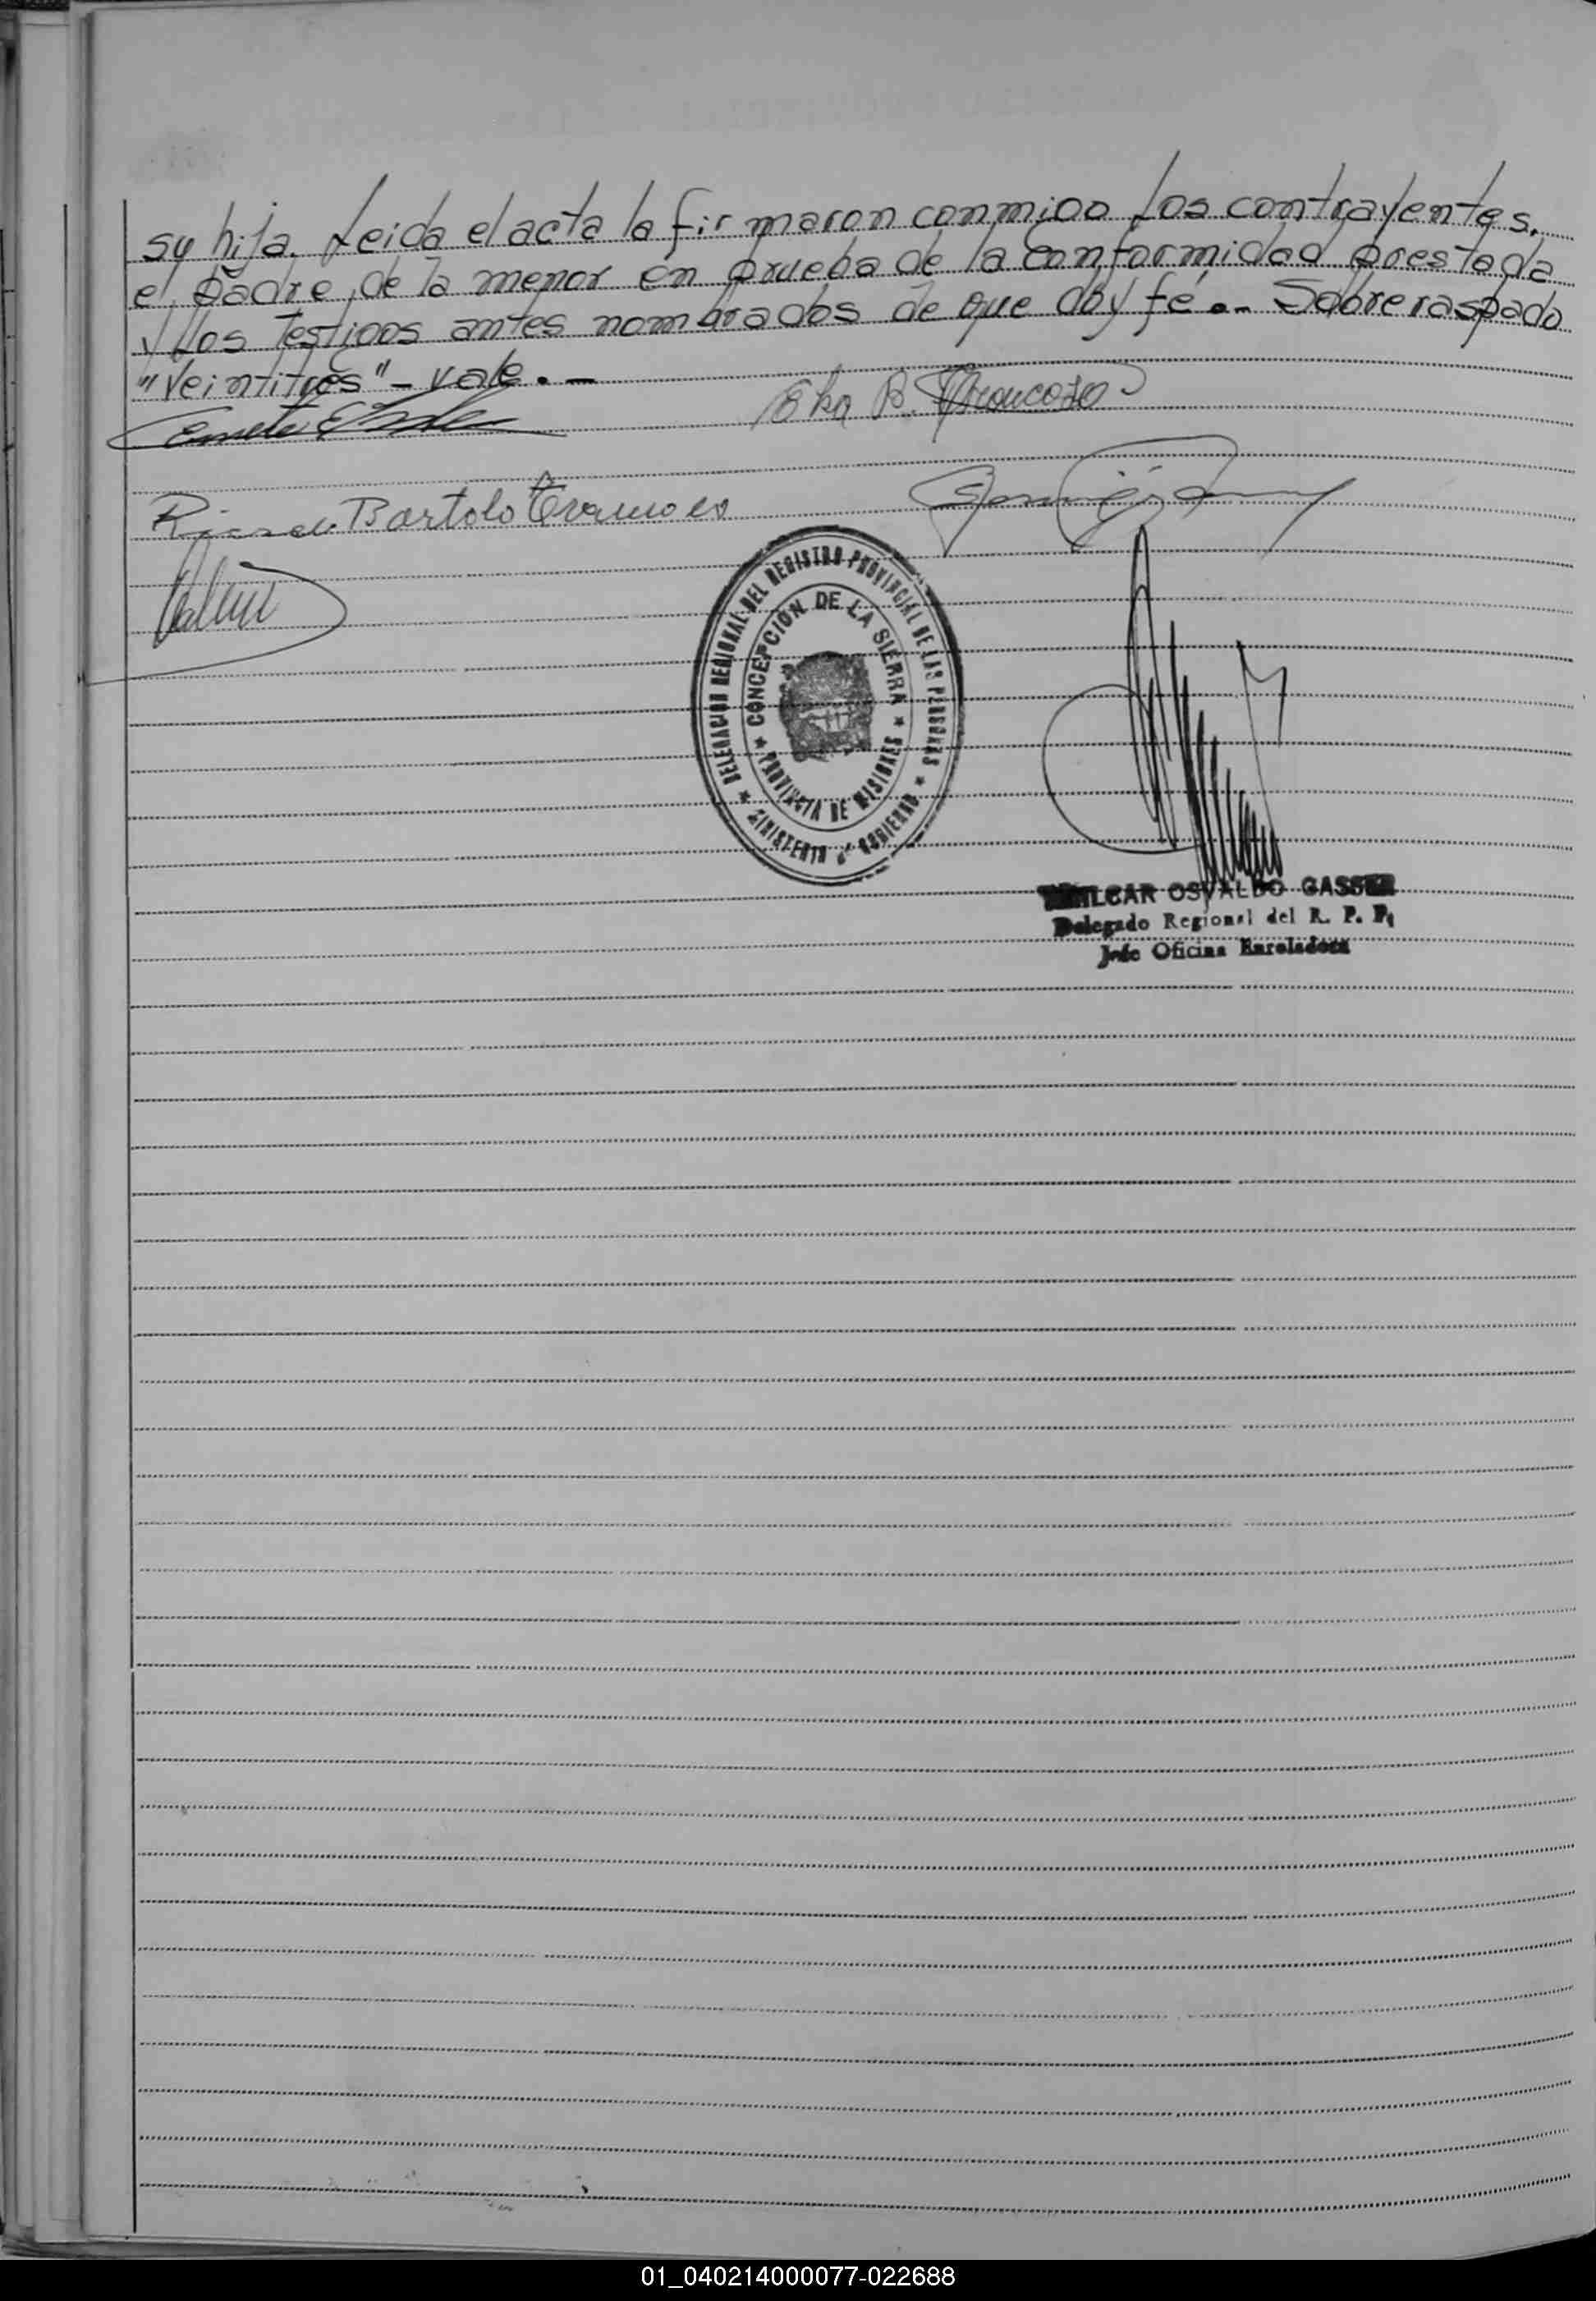 su hija. Leida el acta la firmaron conmigo los contrayentes,
el padre de la menor en prueba de la conformidad prestada
y los testigos antes nombrados de que doy fé.- Sobreraspado
"Veintitres" - vale.-
B. Troncoso
Bartolo
DELEGACION REGIONAL DEL REGISTRO PROVINCIAL DE LAS PERSONAS
CONCEPCION DE LA SIERRA
PROVINCIA DE MISIONES
MINISTERIO DE GOBIERNO
AMILCAR OSVALDO GASSER
Delegado Regional del R. P. P.
Jefe Oficina Enroladora
01_040214000077-022688